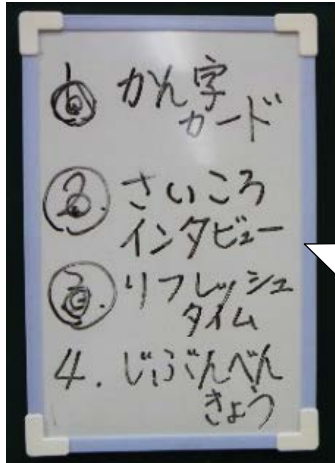 1. かん字
カード
2. さいころ
インタビュー
3. リフレッシュ
タイム
4. じぶんべん
きょう